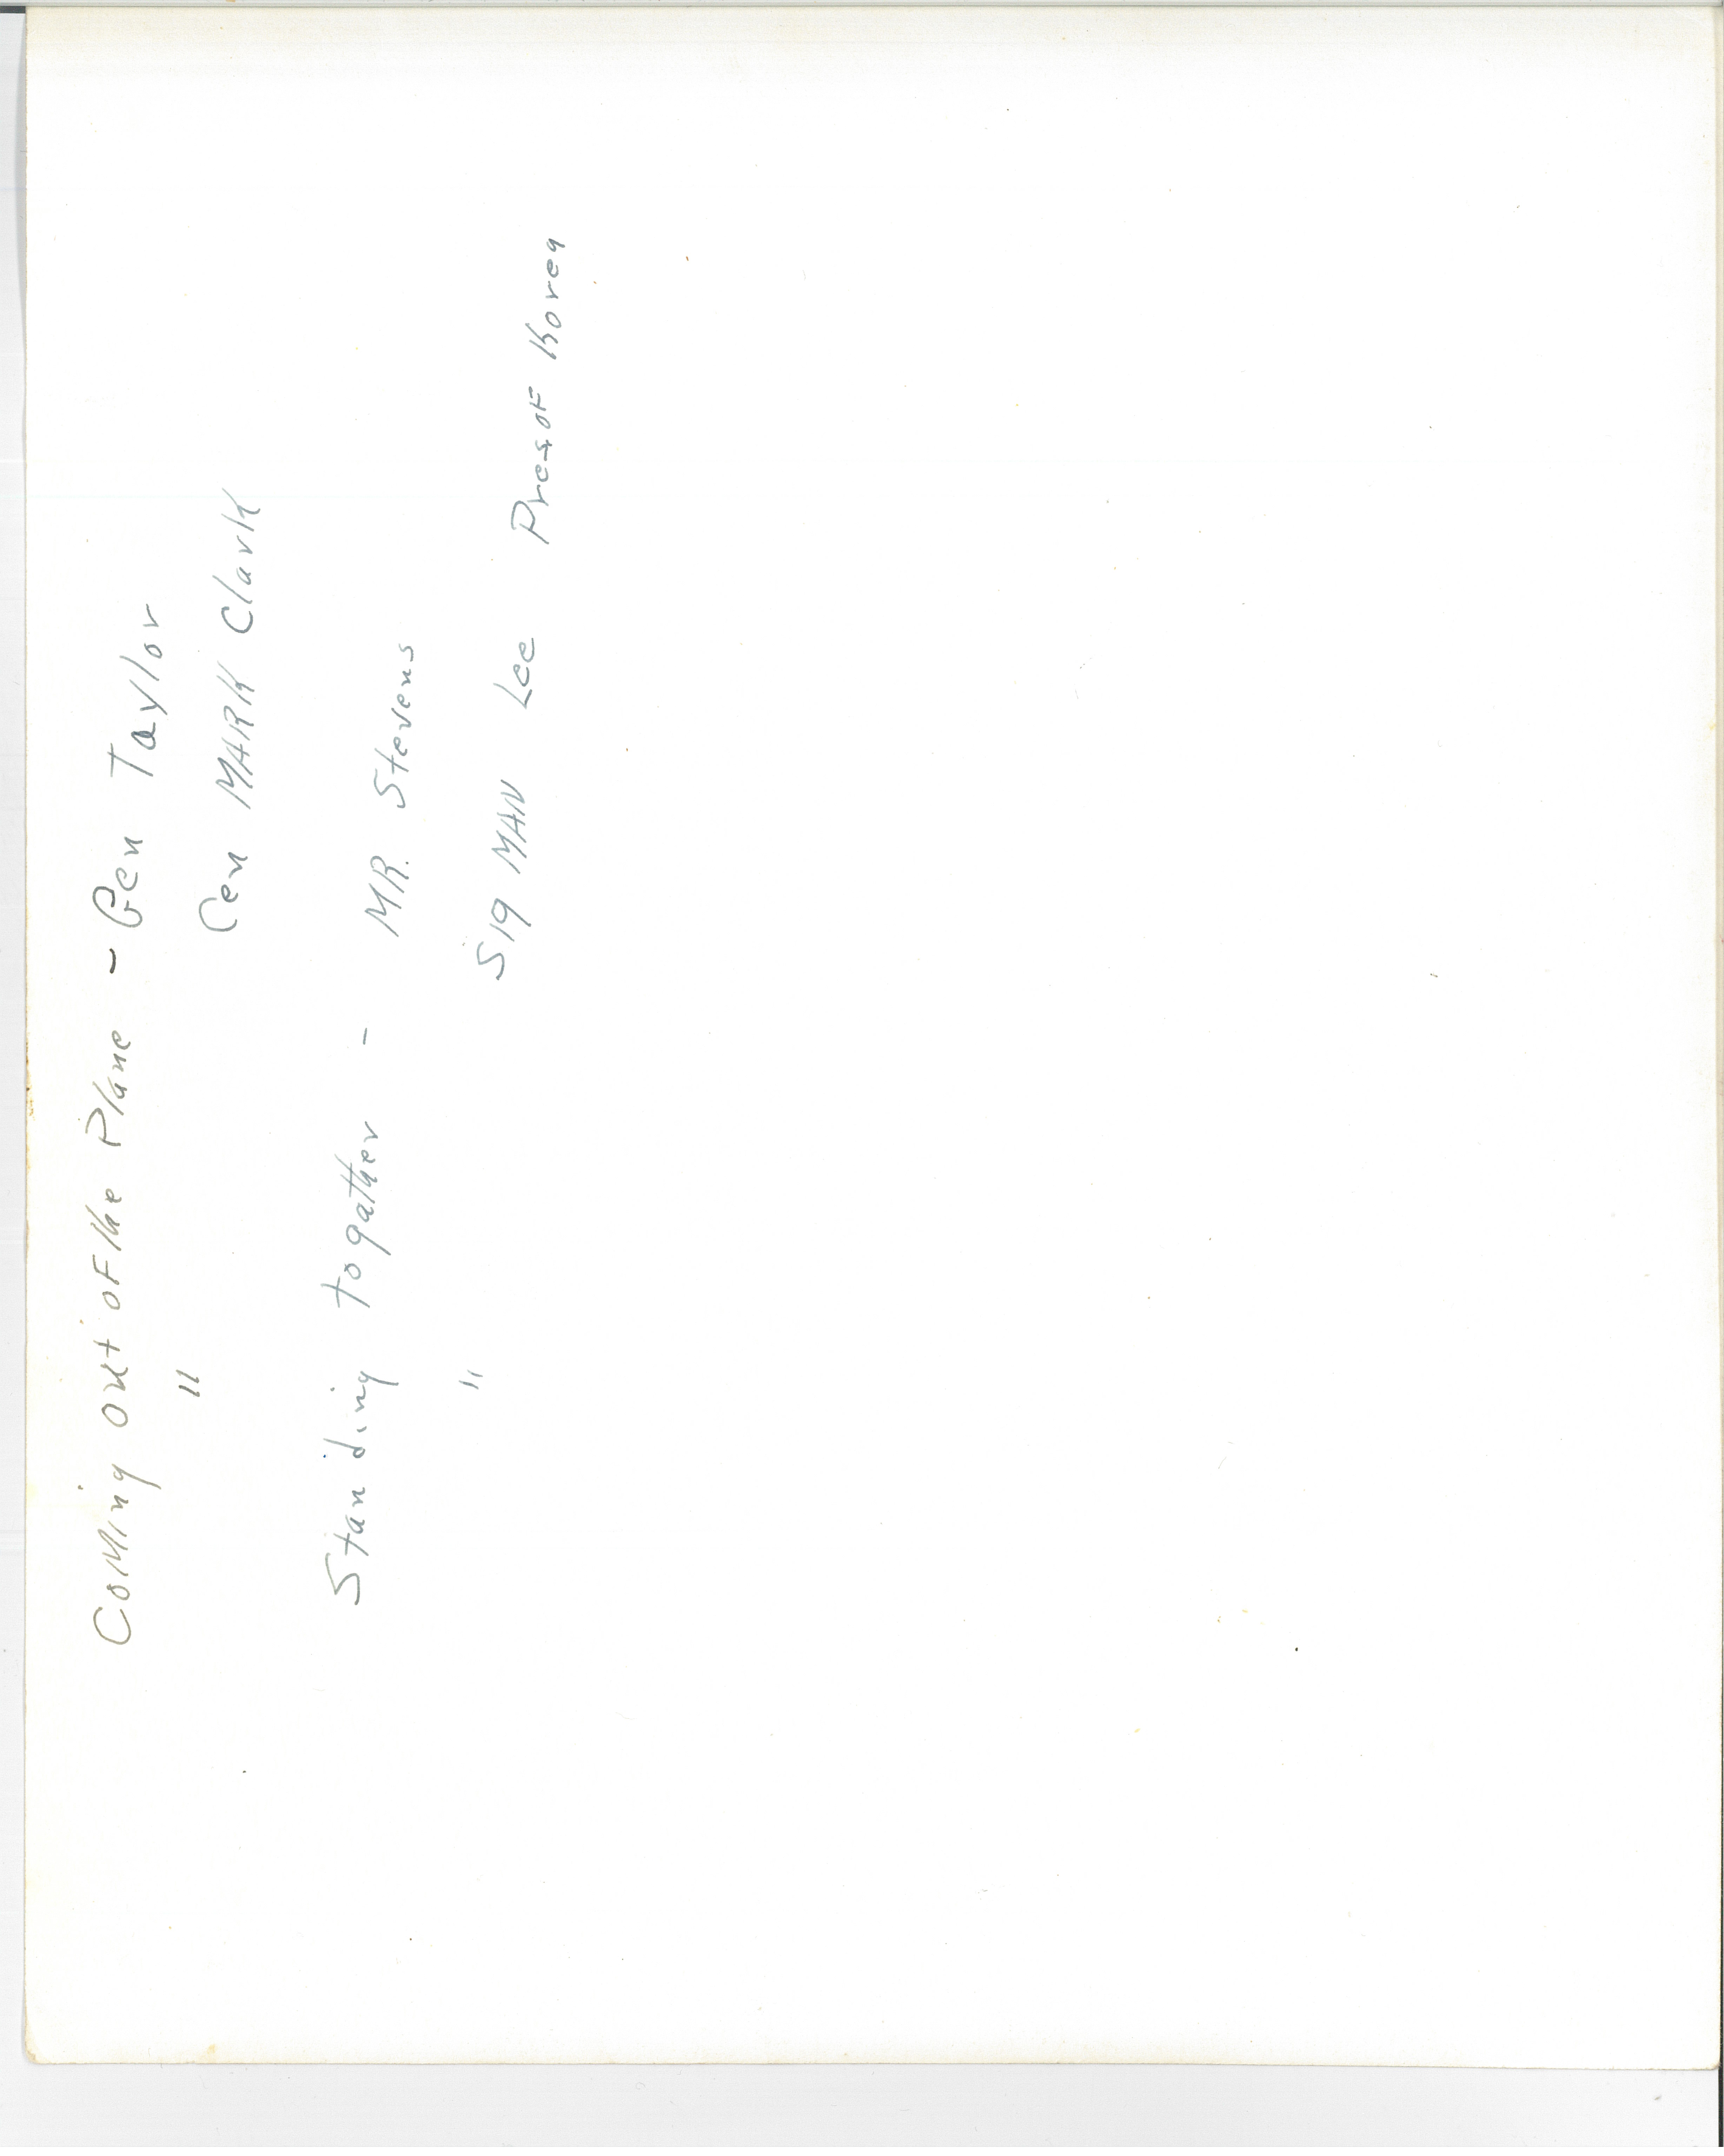 Coming out of the Plane - Gen Taylor
" Gen MARK Clark
Standing togather - MR. Stevens
" Sig MAN Lee Pres of Korea